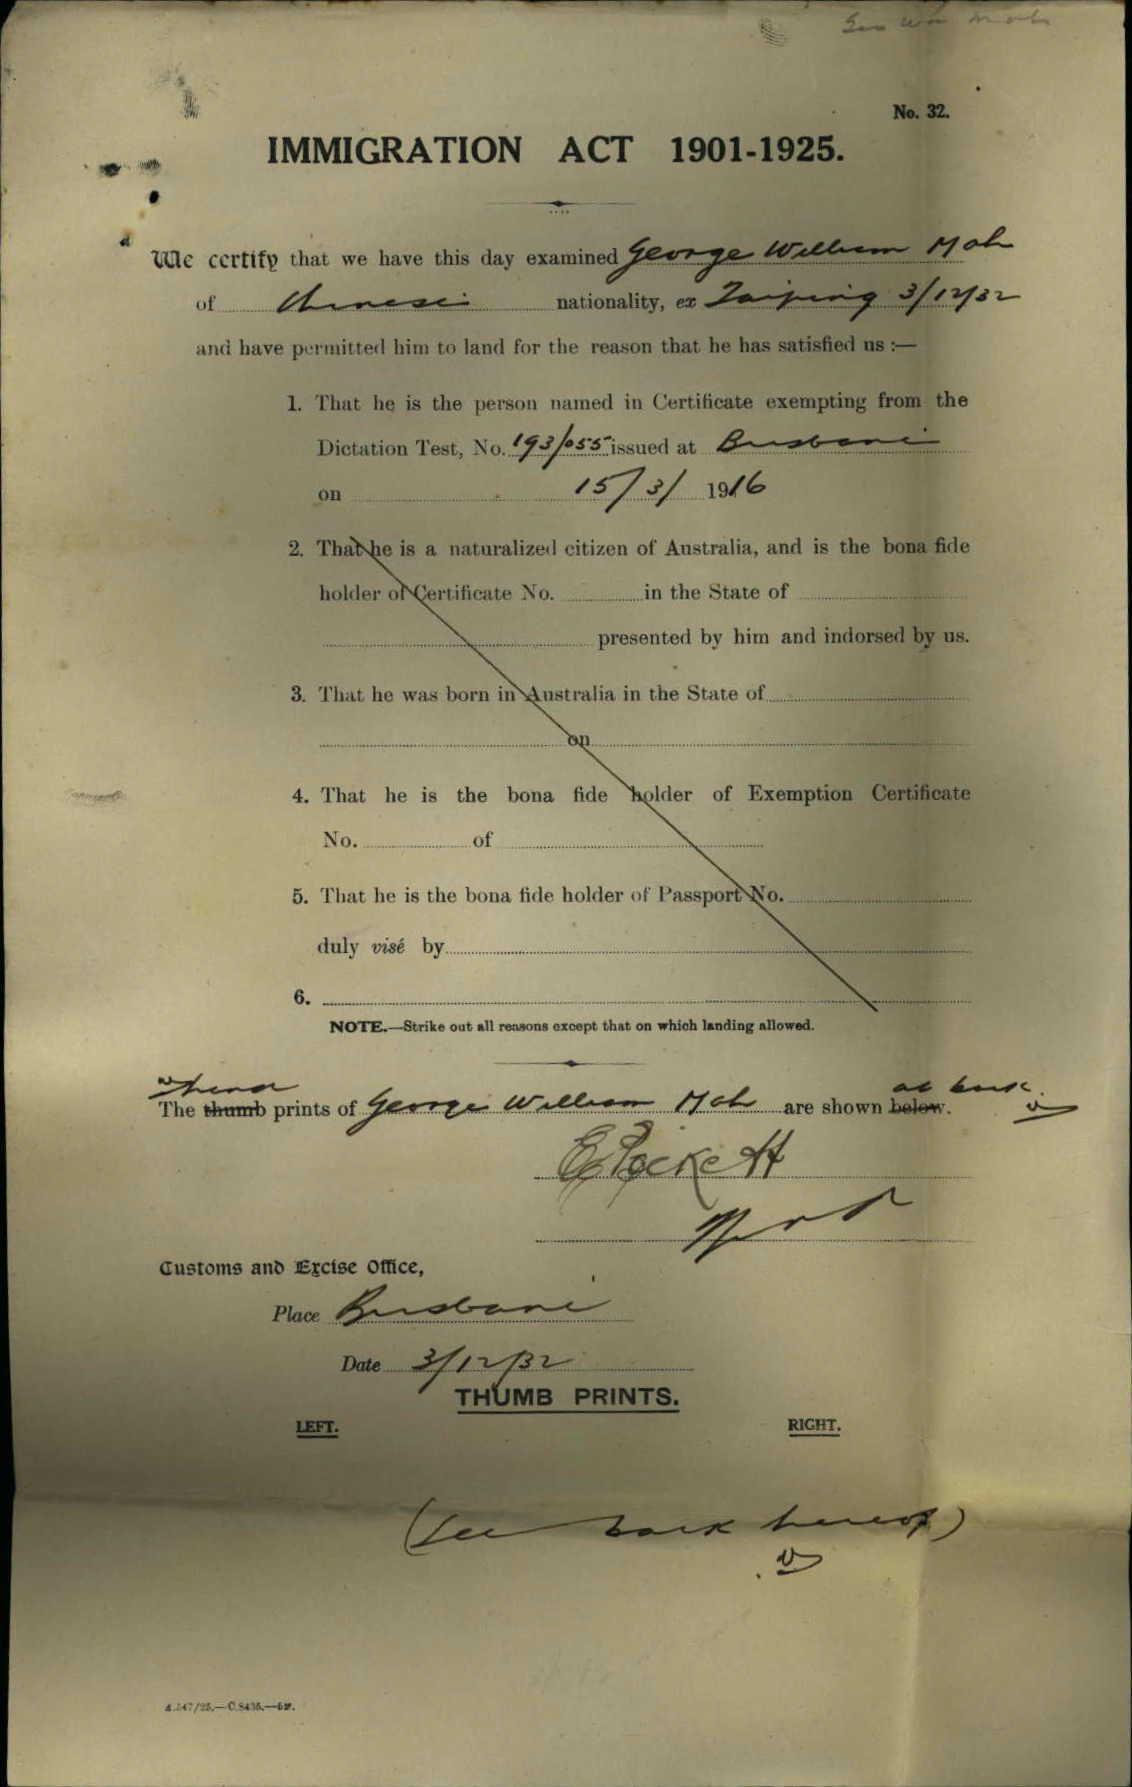 Geo Wm Mah
No. 32.
IMMIGRATION ACT 1901-1925.
We certify that we have this day examined George William Mah
of Chinese nationality, ex Taiping 3/12/32
and have permitted him to land for the reason that he has satisfied us :—
1. That he is the person named in Certificate exempting from the
Dictation Test, No. 193/055 issued at Brisbane
on 15/3/ 1916
2. That he is a naturalized citizen of Australia, and is the bona fide
holder of Certificate No. in the State of
presented by him and indorsed by us.
3. That he was born in Australia in the State of
on
4. That he is the bona fide holder of Exemption Certificate
No. of
5. That he is the bona fide holder of Passport No.
duly visé by
6.
NOTE.—Strike out all reasons except that on which landing allowed.
hand at back
The thumb prints of George William Mah are shown below.
Customs and Excise Office,
Place Brisbane
Date 3/12/32
THUMB PRINTS.
LEFT. RIGHT.
(See back hereof)